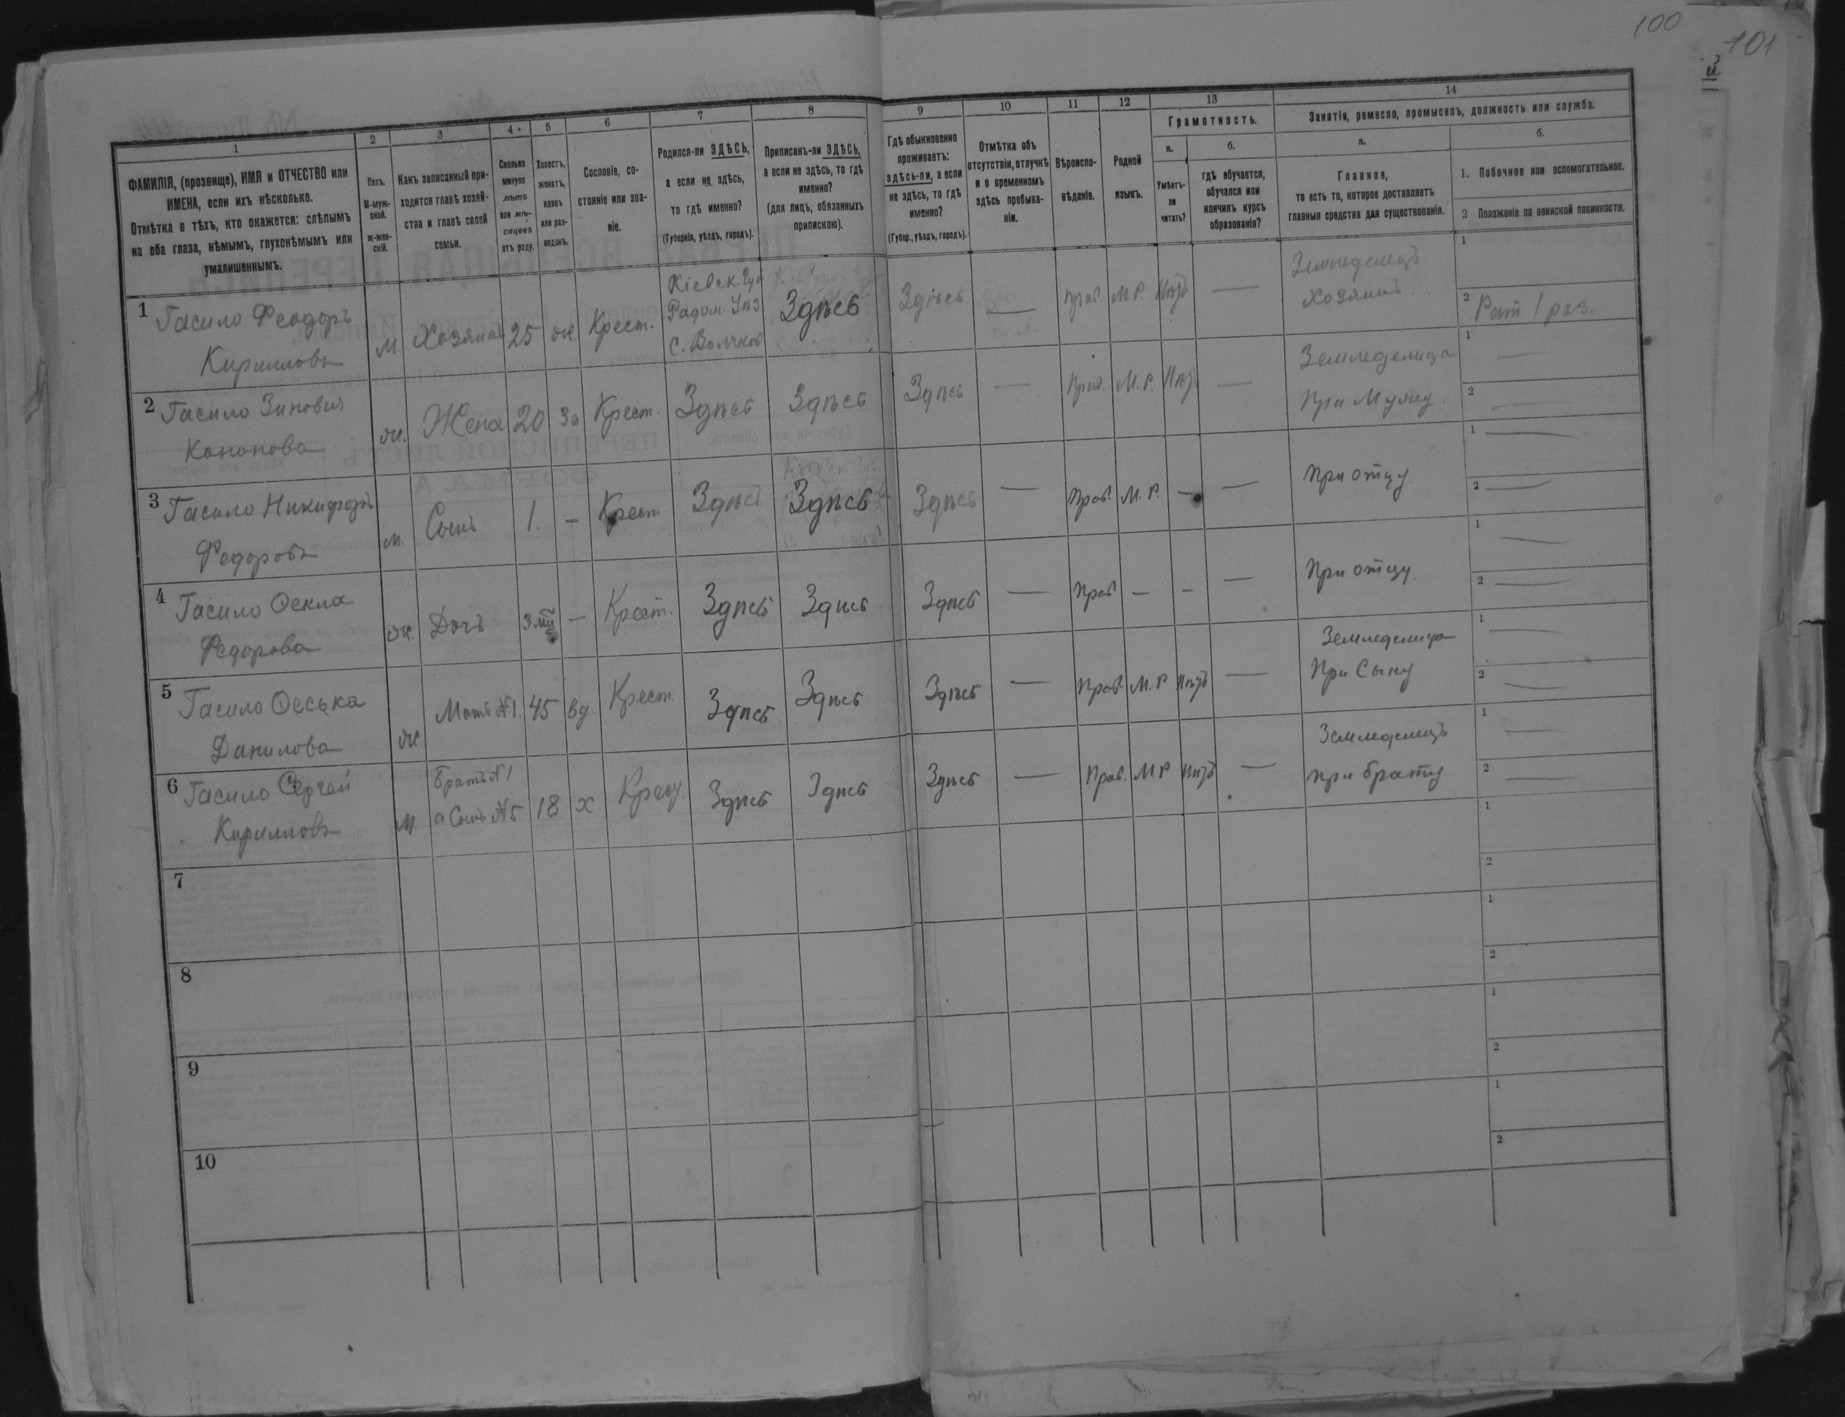 100
101
1
2
3
4
5
6
7
8
9
10
11
12
13
14
ФАМИЛІЯ, (прозвище), ИМЯ и ОТЧЕСТВО или
ИМЕНА, если ихъ нѣсколько.
Отмѣтка о тѣхъ, кто окажется: слѣпымъ
на оба глаза, нѣмымъ, глухонѣмымъ или
умалишеннымъ.
Полъ.
М-муж-
ской.
Ж-жен-
скій.
Какъ записанный при-
ходится главѣ хозяй-
ства и главѣ своей
семьи.
Сколько
минуло
лѣтъ
или мѣ-
сяцевъ
отъ роду.
Холостъ,
женатъ,
вдовъ
или раз-
веденъ.
Сословіе, со-
стояніе или зва-
ніе.
Родился-ли ЗДѢСЬ,
а если не здѣсь,
то гдѣ именно?
(Губернія, уѣздъ, городъ).
Приписанъ-ли ЗДѢСЬ,
а если не здѣсь, то гдѣ
именно?
(для лицъ, обязанныхъ
припискою).
Гдѣ обыкновенно
проживаетъ:
здѣсь-ли, а если
не здѣсь, то гдѣ
именно?
(Губер., уѣздъ, городъ).
Отмѣтка объ
отсутствіи, отлучкѣ
и о временномъ
здѣсь пребыва-
ніи.
Вѣроиспо-
вѣданіе.
Родной
языкъ.
Грамотность.
а.
б.
Умѣетъ-
ли
читать?
гдѣ обучается,
обучался или
кончилъ курсъ
образованія?
Занятіе, ремесло, промыселъ, должность или служба.
а.
б.
Главное,
то есть то, которое доставляетъ
главныя средства для существованія.
1. Побочное или вспомогательное.
2 Положеніе по воинской повинности.
1 Гасило Феодоръ
Кирилловъ
М.
Хозяинъ
25
ж.
Крест.
Кіевск. Губ
Радом. Уѣз
с. Волчков
Здѣсь
Здѣсь
—
Прав.
М.Р.
Нѣтъ
—
Земледелецъ
Хозяинъ
1
2 Рат 1 раз.
2 Гасило Зиновия
Кононова
ж.
Жена
20
За
Крест.
Здѣсь
Здѣсь
Здѣсь
—
Прав.
М.Р.
Нѣтъ
—
Земледелица
При Мужу
1 —
2 —
3 Гасило Никифоръ
Федоровъ
м.
Сынъ
1.
—
Крест
Здѣсь
Здѣсь
Здѣсь
—
Прав.
М.Р.
—
—
При отцу
1 —
2 —
4 Гасило Оекла
Федорова
ж.
Дочь
—
Крест.
Здѣсь
Здѣсь
Здѣсь
—
Прав
—
—
—
При отцу
1 —
2 —
5 Гасило Оеська
Данилова
ж
Мать №1.
45
вд.
Крест.
Здѣсь
Здѣсь
Здѣсь
—
Прав
М.Р
Нѣтъ
—
Земледелица
При Сыну
1 —
2 —
6 Гасило Сергей
Кирилловъ
М
Братъ №1
а Сынъ №5
18
х
Крест.
Здѣсь
Здѣсь
Здѣсь
—
Прав.
М.Р
Нѣтъ
—
Земледелецъ
при брату
1 —
2 —
7
1
2
8
1
2
9
1
2
10
1
2